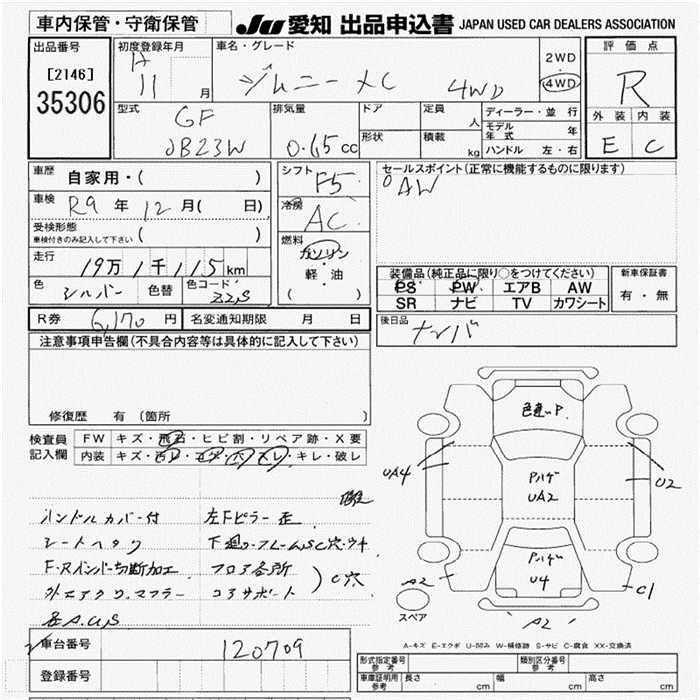 車内保管・守衛保管
JU 愛知 出品申込書 JAPAN USED CAR DEALERS ASSOCIATION
出品番号
[2146]
35306
初度登録年月
H
11 月
車名・グレード
ジムニー XC 4WD
2WD
・
4WD
評価点
R
外装 内装
E C
型式
GF
JB23W
排気量
0.65 cc
ドア
形状
定員 人
積載 kg
ディーラー・並行
モデル年式 年
ハンドル 左・右
車歴 自家用・( )
車検 R9 年 12 月( 日)
受検形態
車検付きのみ記入して下さい ( )
走行
19万 1千 115 km
色 シルバー 色替 色コード Z2S
シフト F5
冷房 AC
燃料
ガソリン
・
軽・油
( )
セールスポイント(正常に機能するものに限ります)
AW
装備品(純正品に限り○をつけてください)
PS PW エアB AW
SR ナビ TV カワシート
新車保証書
有・無
R券 6,170 円 名変通知期限 月 日
後日品
ナンバ
注意事項申告欄(不具合内容等は具体的に記入して下さい)
修復歴 有 (箇所 )
検査員
記入欄
FW キズ・飛石・ヒビ割・リペア跡・X要
内装 キズ・汚レ・コゲ・穴・スレ・キレ・破レ
ハンドルカバー付 左Fピラー歪
シートヘタリ 下廻り・フレームSC穴・ウキ
F・Rインバー切断加工 フロア各所
外エアクリ、マフラー コアサポート
)C穴
各A.U.S
色違いP.
Pハゲ
UA2
Pハゲ
U4
UA4
U2
A2
C1
A2
スペア
A-キズ E-エクボ U-凹み W-補修跡 S-サビ C-腐食 XX-交換済
車台番号 120709
登録番号
形式指定番号
参考
類別区分番号
参考
車庫証明用
参考
長さ cm 幅 cm 高さ cm